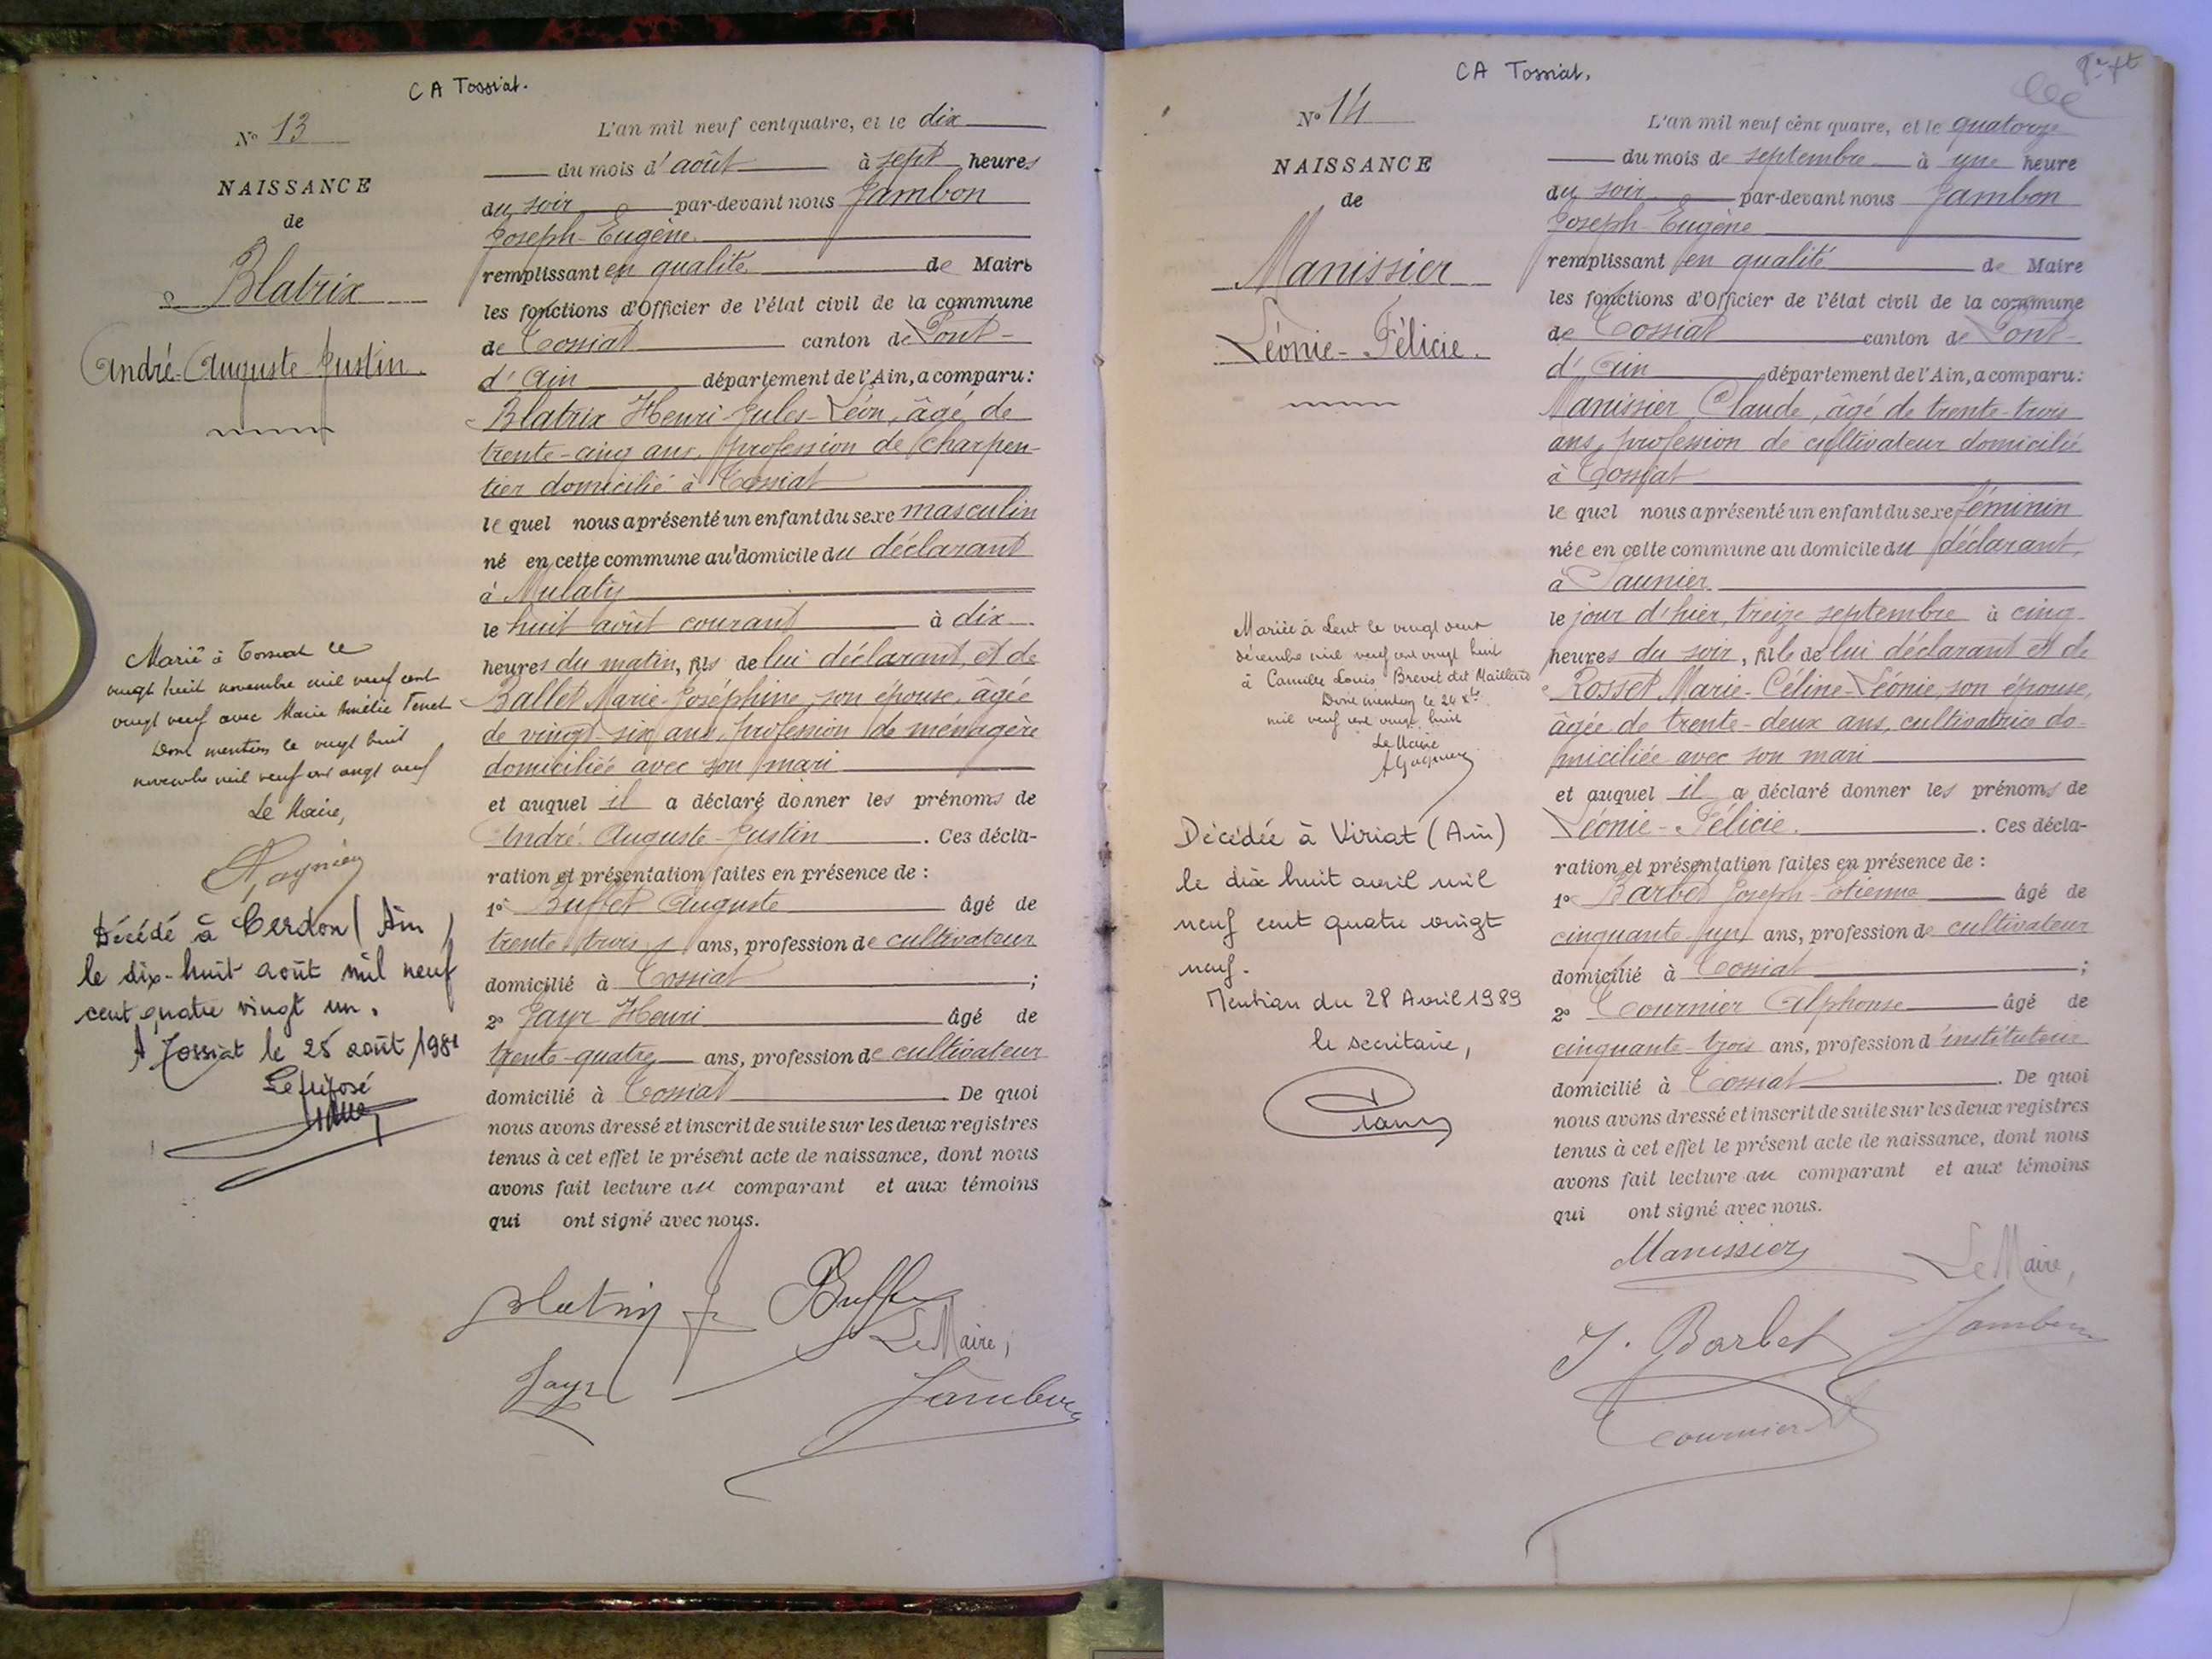 CA Tossiat.
Nº 13
NAISSANCE
de
Blatrix
André-Auguste-Justin.
Marié à Tossiat le
vingt huit novembre mil neuf cent
vingt neuf avec Marie Amélie Tenet
Dont mention le vingt huit
novembre mil neuf cent vingt neuf
Le Maire,
Décédé à Cerdon (Ain)
le dix-huit août mil neuf
cent quatre vingt un.
A Tossiat le 25 août 1981
Le préposé
L'an mil neuf cent quatre, et le dix
du mois d'août à sept heures
du soir par-devant nous Jambon
Joseph-Eugène
remplissant en qualité de Maire
les fonctions d'Officier de l'état civil de la commune
de Tossiat canton de Pont-
d'Ain département de l'Ain, a comparu :
Blatrix Henri-Jules-Léon, âgé de
trente-cinq ans, profession de charpen-
tier domicilié à Tossiat
lequel nous a présenté un enfant du sexe masculin
né en cette commune au domicile du déclarant
à Mulaty
le huit août courant à dix
heures du matin, fils de lui déclarant, et de
Ballet Marie-Joséphine, son épouse, âgée
de vingt six ans, profession de ménagère
domiciliée avec son mari
et auquel il a déclaré donner les prénoms de
André-Auguste-Justin. Ces décla-
ration et présentation faites en présence de :
1º Buffet Auguste âgé de
trente trois ans, profession de cultivateur
domicilié à Tossiat ;
2º Jayr Henri âgé de
trente-quatre ans, profession de cultivateur
domicilié à Tossiat. De quoi
nous avons dressé et inscrit de suite sur les deux registres
tenus à cet effet le présent acte de naissance, dont nous
avons fait lecture au comparant et aux témoins
qui ont signé avec nous.
Blatrix
Buffet
Le Maire,
Jayr
Jambon
CA Tossiat.
Nº 14
NAISSANCE
de
Manissier
Léonie-Félicie.
Mariée à Lent le vingt deux
décembre mil neuf cent vingt huit
à Camille Louis Brevet dit Maillard
Dont mention le 24 Xbre
mil neuf cent vingt huit
Le Maire
Décédée à Viriat (Ain)
le dix huit avril mil
neuf cent quatre vingt
neuf.
Mention du 28 Avril 1989
le secrétaire,
L'an mil neuf cent quatre, et le quatorze
du mois de septembre à une heure
du soir par-devant nous Jambon
Joseph-Eugène
remplissant en qualité de Maire
les fonctions d'Officier de l'état civil de la commune
de Tossiat canton de Pont-
d'Ain département de l'Ain, a comparu :
Manissier Claude, âgé de trente-trois
ans, profession de cultivateur domicilié
à Tossiat
lequel nous a présenté un enfant du sexe féminin
née en cette commune au domicile du déclarant,
à Saunier
le jour d'hier, treize septembre à cinq
heures du soir, fille de lui déclarant et de
Rosset Marie-Céline-Léonie, son épouse,
âgée de trente-deux ans, cultivatrice do-
miciliée avec son mari
et auquel il a déclaré donner les prénoms de
Léonie-Félicie. Ces décla-
ration et présentation faites en présence de :
1º Barbet Joseph-Etienne âgé de
cinquante un ans, profession de cultivateur
domicilié à Tossiat ;
2º Tournier Alphonse âgé de
cinquante-trois ans, profession d'instituteur
domicilié à Tossiat. De quoi
nous avons dressé et inscrit de suite sur les deux registres
tenus à cet effet le présent acte de naissance, dont nous
avons fait lecture au comparant et aux témoins
qui ont signé avec nous.
Manissier
Le Maire,
J. Barbet
Jambon
Tournier